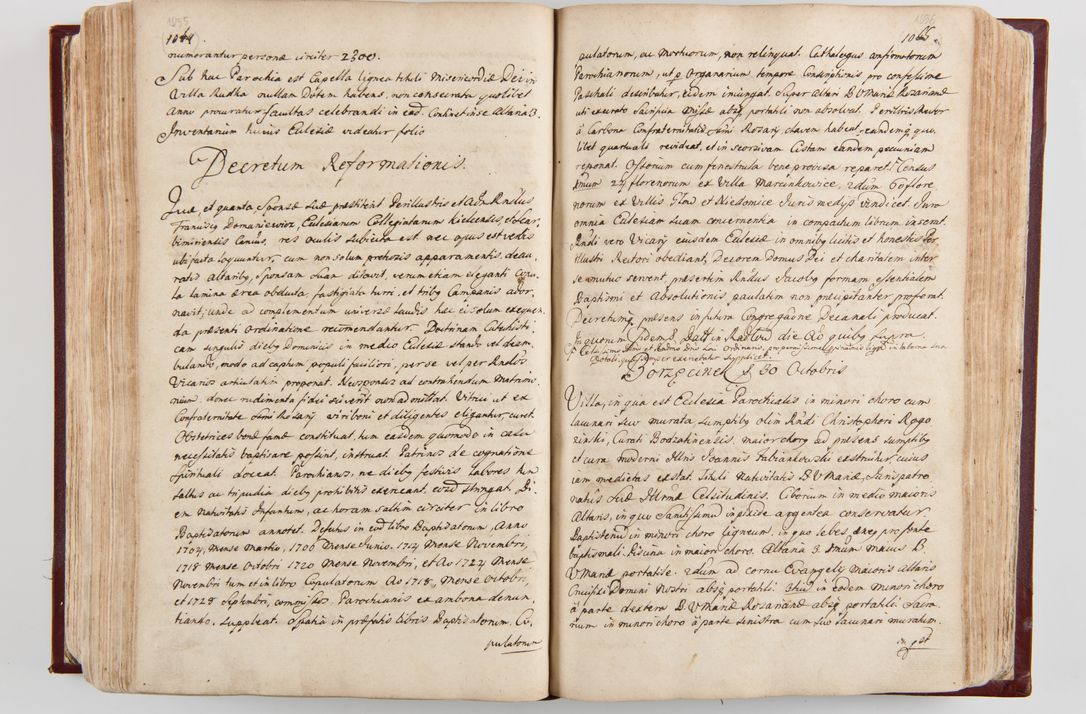 1035
1044.
numerantur personæ circiter 2300.
Sub hac Parochia est Capella lignea tituli Misericordiæ Dei in
Villa Rudka nullam Dotem habens, non consecrata quolibet
Anno procuratur facultas celebrandi in ead. Continet in se Altaria 3.
Inventarium huius Ecclesiæ videatur folio
Decretum Reformationis.
Quæ, et quanta Sponsæ suæ præstitent Perillustris et Adm Rndus
Franciscus Domaniewicz, Ecclesiarum Collegiatarum Kielcensis, et Scar-
bimiriensis Canus, res oculis subiecta est nec opus est verbis
ubi facta loquuntur, cum non solum pretiosis apparamentis, deau-
ratis altaribq, Sponsam suam ditavit, verum etiam eleganti cupu-
la lamina ærea obducta, fastigiata turri, et tribq Campanis ador-
navit; unde ad complementum universæ laudis hæc ei solum exequen-
da præsenti ordinatione recommendantur. Doctrinam Catechisti-
cam singulis diebq Dominicis in medio Ecclesiæ stando vel deam-
bulando, modo ad captum populi faciliori, per se vel per Rndos
Vicarios articulatim proponat. Neosponsos ad contrahendum Matrimo-
nium, donec rudimenta fidei sciverit non admittat. Vitrici ut ex
Confraternitate Ssmi Rosarÿ viri boni et diligentes eligantur, curet.
Obstetrices bonæ famæ constituat, tum easdem quomodo in casu
necessitatis baptisare possint, instruat. Patrinos de cognatione
spirituali doceat. Parochianos, ne diebq festivis labores tum
saltus ac tripudia diebq prohibitis exerceant, coad stringat. Di-
em nativitatis Infantum, ac horam saltim circiter in libro
Baptisatorum annotet. Defectus in eod libro Baptisatorum, Anno
1704, Mense Martio, 1706 Mense Junio, 1714 Mense Novembri,
1718 Mense Octobri 1720 Mense Novembri, et Ao 1724 Mense
Novembri tum et in libro Copulatorum Ao 1718, Mense Octobri,
et 1728 Septembri, commissos, Parochianis ex ambona denun-
tiando, suppleat. Spatia in præfatis libris Baptisatorum, Co-
pulatorum
1036
1045.
pulatorum, ac mortuorum, non relinquat. Cathalogus confirmatorum
Parochianorum, ut p. Organarium tempore Conscriptionis pro confessione
Paschali describatur, eidem iniungat. Super Altari B. V. Mariæ Rosarianæ
uti exurato Sacrificia Missæ absq portatili non absolvat. Perillris Rector
à Carbona Confraternitatis Ssmi Rosarÿ, clavem habeat, eandemq quo-
libet quartuali revideat, et in seorsivam Cistam eandem pecuniam
reponat. Ossorium cum fenestrula bene provisa reparet. Census
1mum 24 florenorum ex Villa Marcinkowice, 2dum 60 flore-
norum ex Villis Glow et Niedomice Juris medys vindicet. Jura
omnia Ecclesiam suam concernentia in compactum librum inserat.
Rndi vero Vicarÿ eiusdem Ecclesiæ in omnibq licitis et honestis Per
Illustri Rectori obediant, Decorem Domus Dei et charitatem inter
se mutuo servent, præsertim Rndus Jacobq formam essentialem
Baptismi et Absolutionis paulatim non præcipitanter proferat.
Decretumq præsens in futura Congregatione Decanali producat.
In quorum fidem &. Datt in Radłow die &o quibq supra
Bodzęcinek &. 30 Octobris
Villa, in qua est Ecclesia Parochialis in minori choro cum
lacunari suo murata sumptibq olim Rndi Christophori Rogo-
zinski, Curati Bodzatinensis, maior chorq ad præsens sumptibq
et cura moderni Illris Joannis Tatzanowski exstruitur, cuius
iam medietas exstat. Tituli Nativitatis B. V. Mariæ, Jurispatro-
natus Suæ Illmæ Celsitudinis. Ciborium in medio maioris
Altaris, in quo Sanctissimum in pixide argentea conservatur,
Baptisterium in minori choro ligneum, in quo lebes æneq pro fonte
baptismali. Piscina in maiori choro. Altaria 3. 1mum maius B.
V. Mariæ portatile. 2dum ad cornu Evangelÿ maioris altaris
Crucifixi Domini Nostri absq portatili. 3tiu in eodem minori choro
à parte dextera B. V. Mariæ Rosarianæ absq portatili. Sacra-
rium in minori choro à parte sinistra cum suo lacunari muratum.